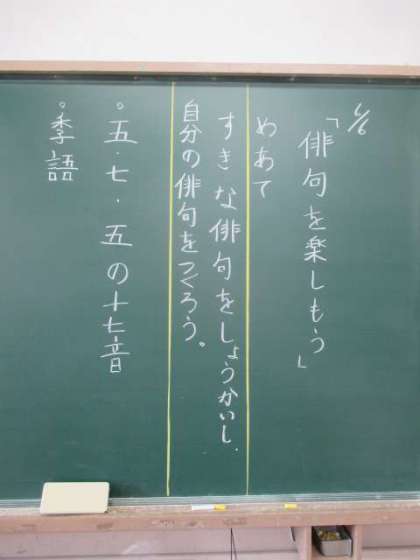 6/6
「俳句を楽しもう」
めあて
すきな俳句をしょうかいし、
自分の俳句をつくろう。
。五・七・五の十七音
。季語